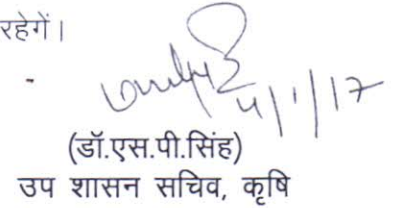 रहेगें।
4/1/17
(डॉ.एस.पी.सिंह)
उप शासन सचिव, कृषि